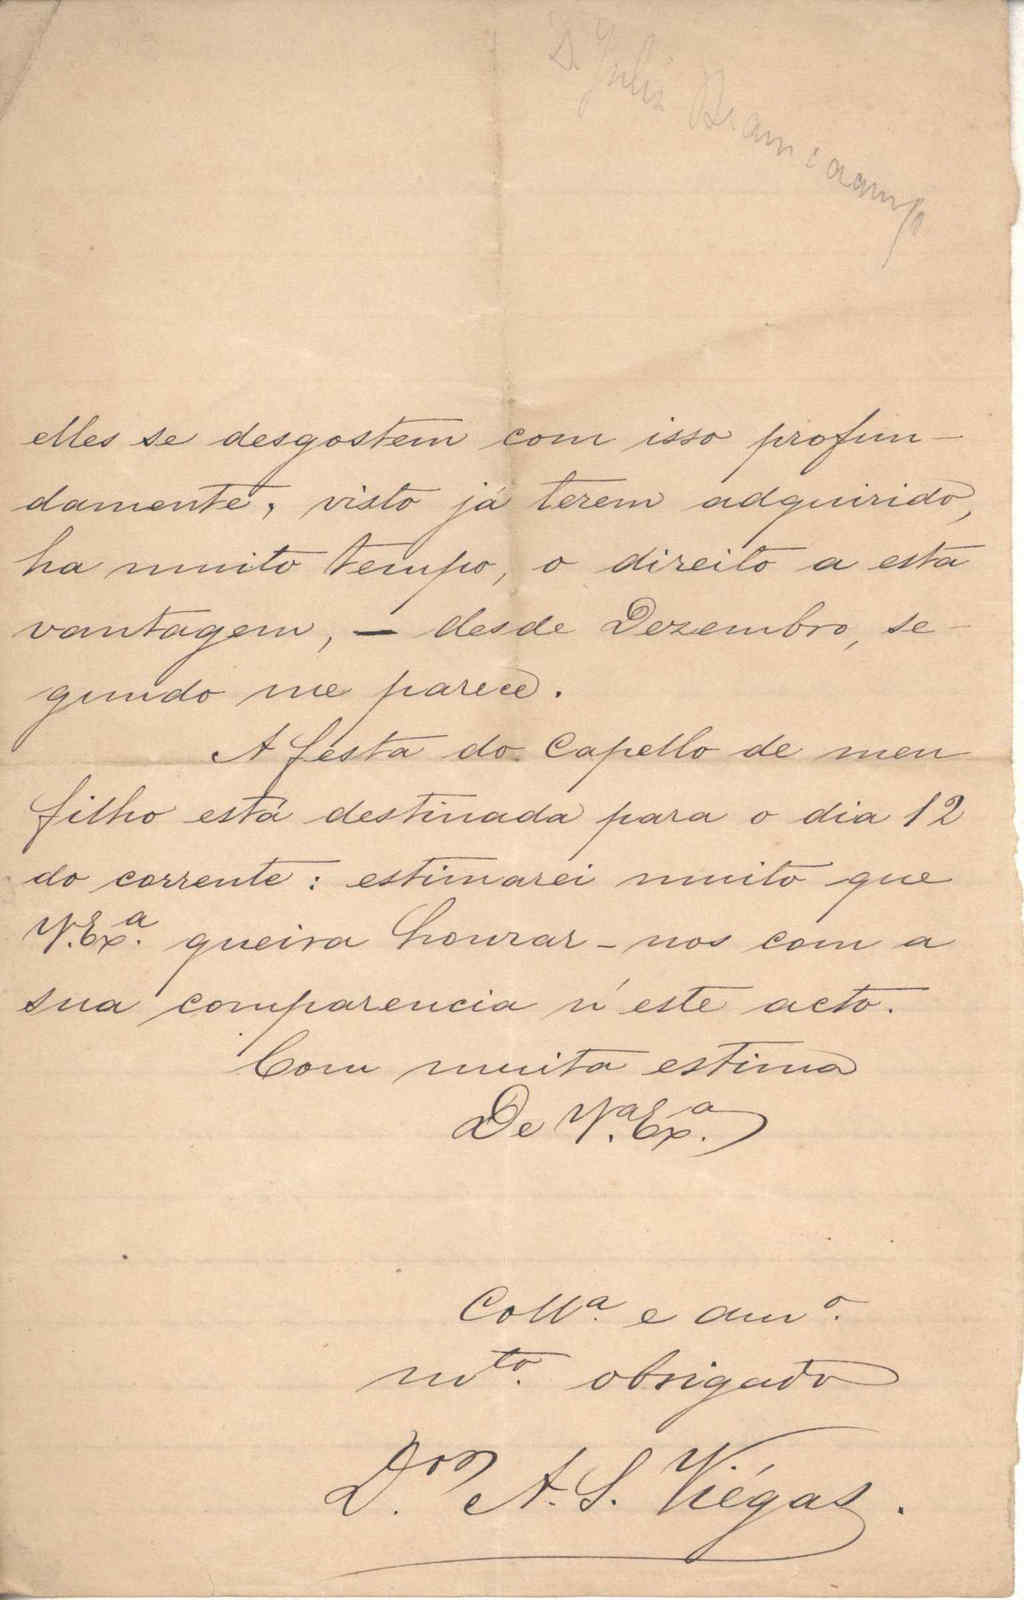 D. Julia Bramcaamp
elles se desgostem com isso profun-
damente, visto já terem adquirido,
ha muito tempo, o direito a esta
vantagem, – desde Dezembro, se-
gundo me parece.
A festa do Capello de meu
filho está destinada para o dia 12
do corrente: estimarei muito que
V.Exª. queira honrar-nos com a
sua comparencia n'este acto.
Com muita estima
De V.ª Exª.
Collª. e amº.
mtº. obrigado
D.or A. S. Viégas.